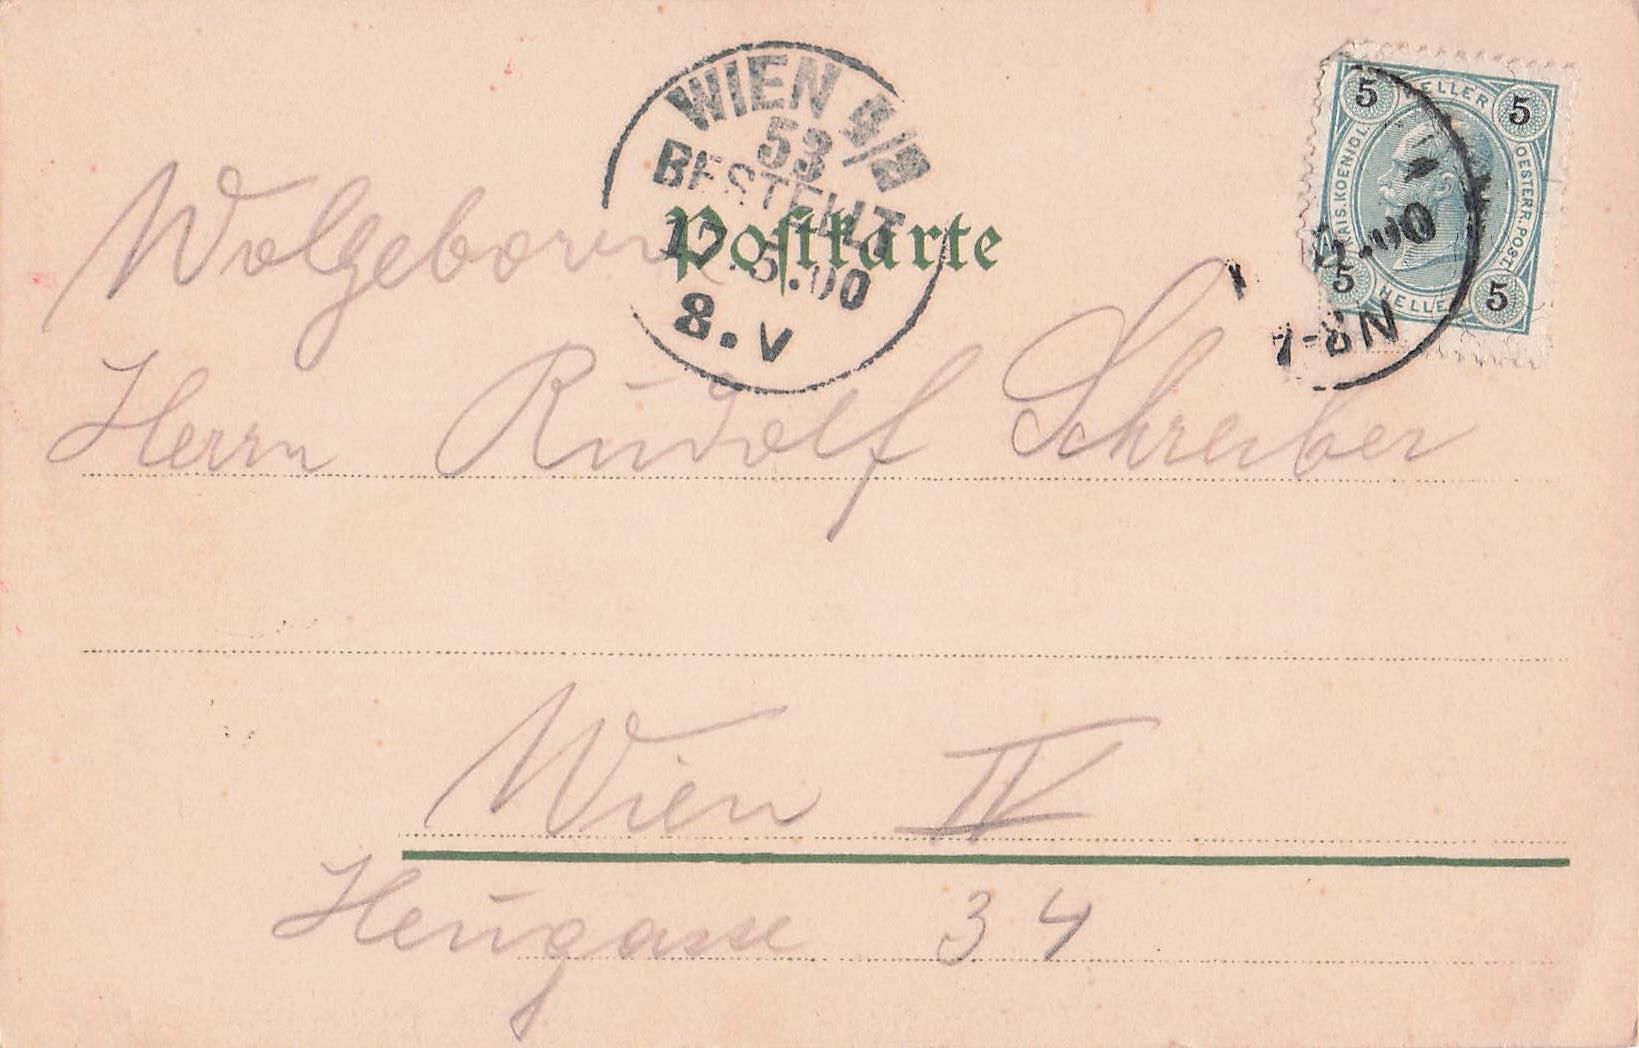 WIEN 4/2
53
BESTELLT
17.5.00
8.V
Postkarte
5 HELLER 5
KAIS.KOENIGL.
OESTERR.POST.
5 HELLER 5
00
7-8N
Wolgeboren
Herrn Rudolf Schreiber
Wien IV
Heugasse 34